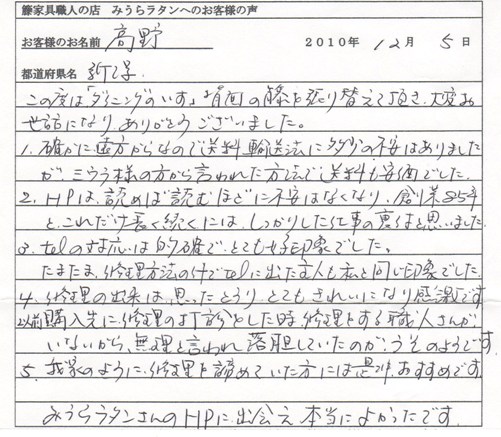 籐家具職人の店 みうらラタンへのお客様の声
お客様のお名前 高野 2010年 12月 5日
都道府県名 新潟
この度は「ダイニングのいす」背面の籐を張り替えて頂き、大変お
世話になり、ありがとうございました。
1. 確かに遠方からなので送料、輸送法に多少の不安はありました
が、ミウラ様の方から言われた方法で送料も安価でした。
2. HPは、読めば読むほどに不安はなくなり、創業85年
と、これだけ長く続くには、しっかりした仕事の裏付と思いました
3. telの対応は的確で、とても好印象でした。
たまたま、修理方法の件でtelに出た主人も私と同じ印象でした。
4. 修理の出来は、思ったとうり、とてもきれいになり感激です。
以前購入先に、修理の打診をした時、修理をする職人さんが
いないから、無理と言われ落胆していたのが、うそのようです。
5. 我家のように、修理を諦めていた方には是非、おすすめです。
みうらラタンさんのHPに出会え本当によかったです。